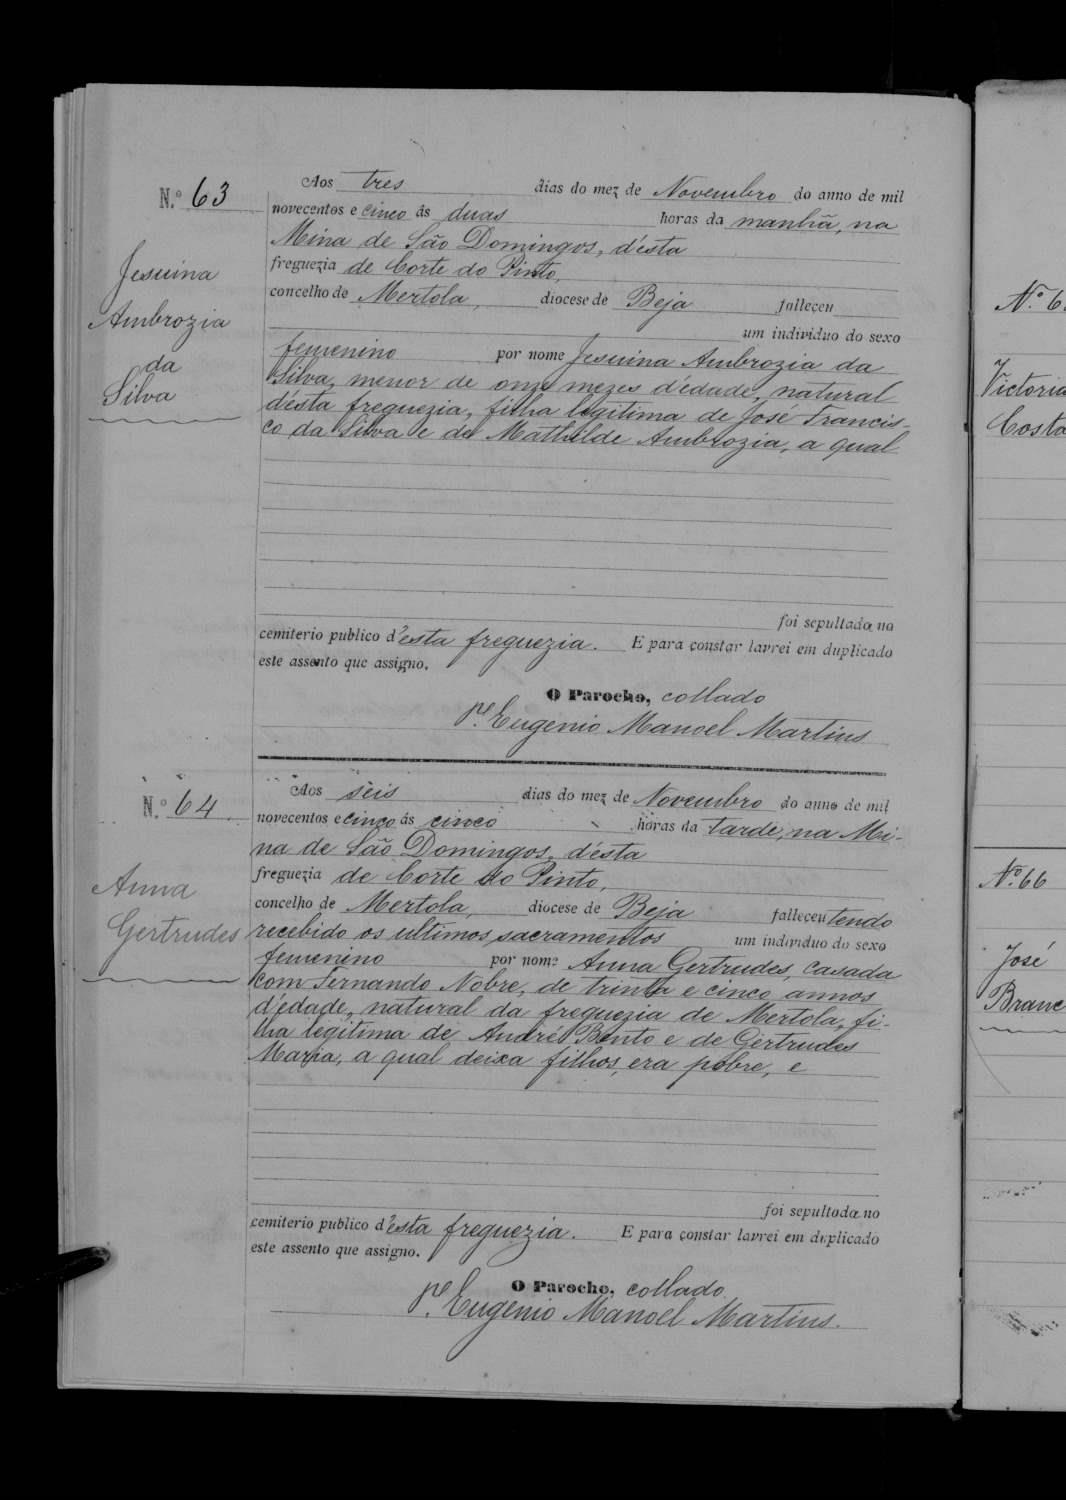 N.º 63
Jesuina
Ambrozia
da
Silva
Aos tres dias do mez de Novembro do anno de mil
novecentos e cinco ás duas horas da manhã, na
Mina de São Domingos, d'ésta
freguezia de Corte do Pinto,
concelho de Mertola, diocese de Beja falleceu
um individuo do sexo
femenino por nome Jesuina Ambrozia da
Silva, menor de onze mezes d'édade, natural
d'ésta freguezia, filha legitima de José Francis-
co da Silva e de Mathilde Ambrozia, a qual
foi sepultada no
cemiterio publico d'ésta freguezia. E para constar lavrei em duplicado
este assento que assigno.
O Parocho, collado
P.e Eugenio Manoel Martins
N.º 64
Anna
Gertrudes
Aos seis dias do mez de Novembro do anno de mil
novecentos e cinco ás cinco horas da tarde, na Mi-
na de São Domingos, d'ésta
freguezia de Corte do Pinto,
concelho de Mertola, diocese de Beja falleceu tendo
recebido os ultimos sacramentos um individuo do sexo
femenino por nome Anna Gertrudes, casada
com Fernando Nobre, de trinta e cinco annos
d'édade, natural da freguezia de Mertola, fi-
lha legitima de André Bento e de Gertrudes
Maria, a qual deixa filhos, era pobre, e
foi sepultada no
cemiterio publico d'ésta freguezia. E para constar lavrei em duplicado
este assento que assigno.
O Parocho, collado
P.e Eugenio Manoel Martins.
N.º 6
Victoria
Costa
N.º 66
José
Branc